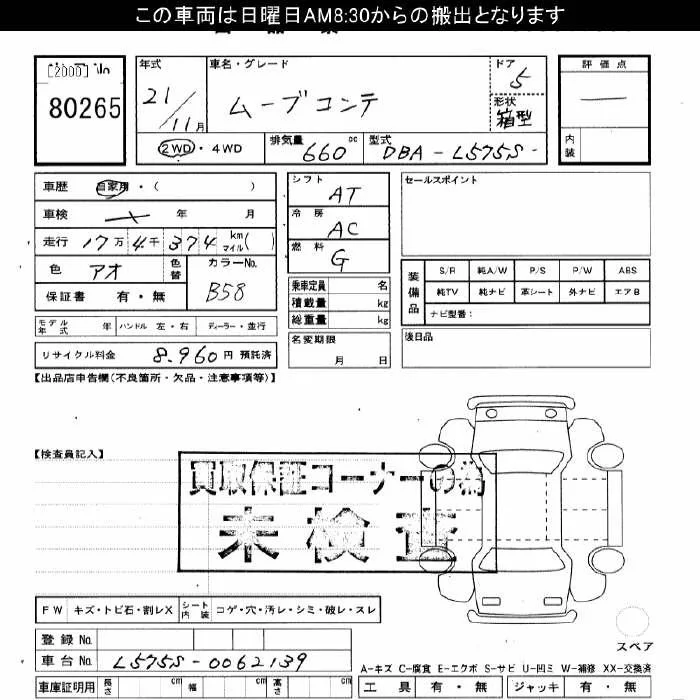 この車両は日曜日AM8:30からの搬出となります
[2000]
80265
年式
21/11月
車名・グレード
ムーブコンテ
ドア
5
形状
箱型
評価点
内装
2WD・4WD
排気量 660 cc
型式 DBA-L575S-
車歴 自家用・( )
車検 年 月
走行 17万 4千 374 km マイル( )
色 アオ 色替
カラーNo. B58
保証書 有・無
シフト AT
冷房 AC
燃料 G
乗車定員 名
積載量 kg
総重量 kg
名変期限 月 日
セールスポイント
装備品
S/R 純A/W P/S P/W ABS
純TV 純ナビ 革シート 外ナビ エアB
ナビ型番:
後日品
モデル年式 年 ハンドル 左・右 ディーラー・並行
リサイクル料金 8,960円 預託済
【出品店申告欄(不良箇所・欠品・注意事項等)】
【検査員記入】
買取保証コーナーの為
未検査
FW キズ・トビ石・割レX シート内装 コゲ・穴・汚レ・シミ・破レ・スレ
スペア
登録No.
車台No. L575S-0062139
A-キズ C-腐食 E-エクボ S-サビ U-凹ミ W-補修 XX-交換済
車庫証明用 長さ cm 幅 cm 高さ cm
工具 有・無 ジャッキ 有・無